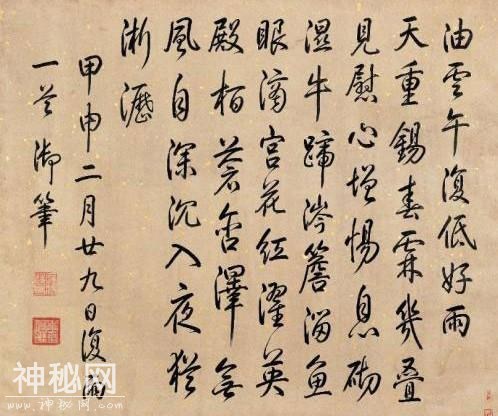 油雲午復低好雨
天重錫春霖幾疊
見慰心增惕息砌
濕牛蹄涔簷溜魚
眼滴宮花紅濯英
殿柏蒼含澤無
風自深沉入夜猶
淅瀝
甲申二月廿九日復雨
一首御筆
神秘网
WWW.SHENMIW.COM